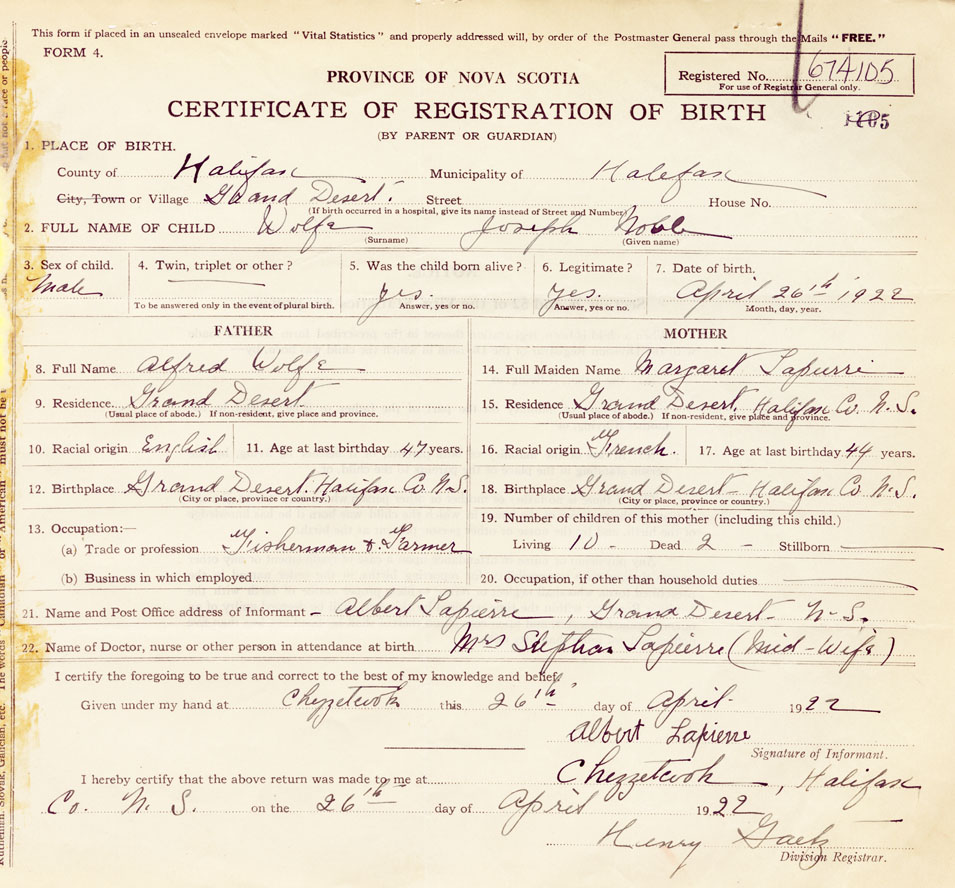 This form if placed in an unsealed envelope marked "Vital Statistics" and properly addressed will, by order of the Postmaster General pass through the Mails "FREE."
FORM 4.
PROVINCE OF NOVA SCOTIA
Registered No. 674105
For use of Registrar General only.
CERTIFICATE OF REGISTRATION OF BIRTH
(BY PARENT OR GUARDIAN)
1. PLACE OF BIRTH.
County of Halifax Municipality of Halifax
City, Town or Village Grand Desert. Street House No.
(If birth occurred in a hospital, give its name instead of Street and Number)
2. FULL NAME OF CHILD Wolfe Joseph Noble
(Surname) (Given name)
3. Sex of child. 4. Twin, triplet or other? 5. Was the child born alive? 6. Legitimate? 7. Date of birth.
Male yes. yes. April 26th 1922
To be answered only in the event of plural birth. Answer, yes or no. Answer, yes or no. Month, day, year.
FATHER MOTHER
8. Full Name Alfred Wolfe 14. Full Maiden Name Margaret Lapierre
9. Residence. Grand Desert 15. Residence Grand Desert. Halifax Co. N.S.
(Usual place of abode.) If non-resident, give place and province. (Usual place of abode.) If non-resident, give place and province.
10. Racial origin English 11. Age at last birthday 47 years. 16. Racial origin French. 17. Age at last birthday 44 years.
12. Birthplace Grand Desert. Halifax Co N.S. 18. Birthplace Grand Desert - Halifax Co N.S.
(City or place, province or country.) (City or place, province or country.)
13. Occupation:— 19. Number of children of this mother (including this child.)
(a) Trade or profession Fisherman & Farmer Living 10 - Dead 2 - Stillborn
(b) Business in which employed 20. Occupation, if other than household duties
21. Name and Post Office address of Informant - Albert Lapierre, Grand Desert N-S.
22. Name of Doctor, nurse or other person in attendance at birth Mrs Stephan Lapierre (Mid-Wife)
I certify the foregoing to be true and correct to the best of my knowledge and belief.
Given under my hand at Chezzetcook this 26th day of April 1922
Albert Lapierre
Signature of Informant.
I hereby certify that the above return was made to me at Chezzetcook, Halifax
Co. N.S. on the 26th day of April 1922
Henry
Division Registrar.